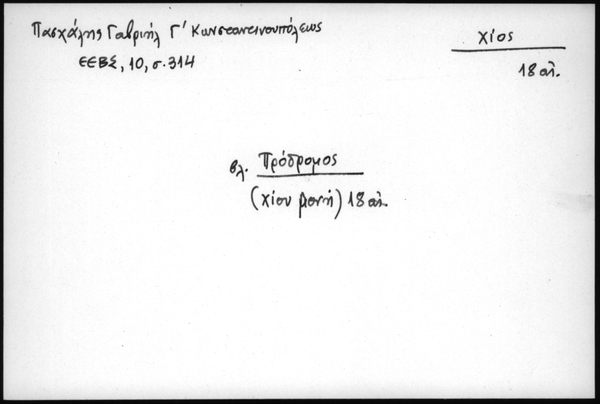 Πασχάλης Γαβριήλ Γ' Κωνσταντινουπόλεως
ΕΕΒΣ, 10, σ. 314
Χίος
18 αἰ.
βλ. Πρόδρομος
(Χίου μονή) 18 αἰ.